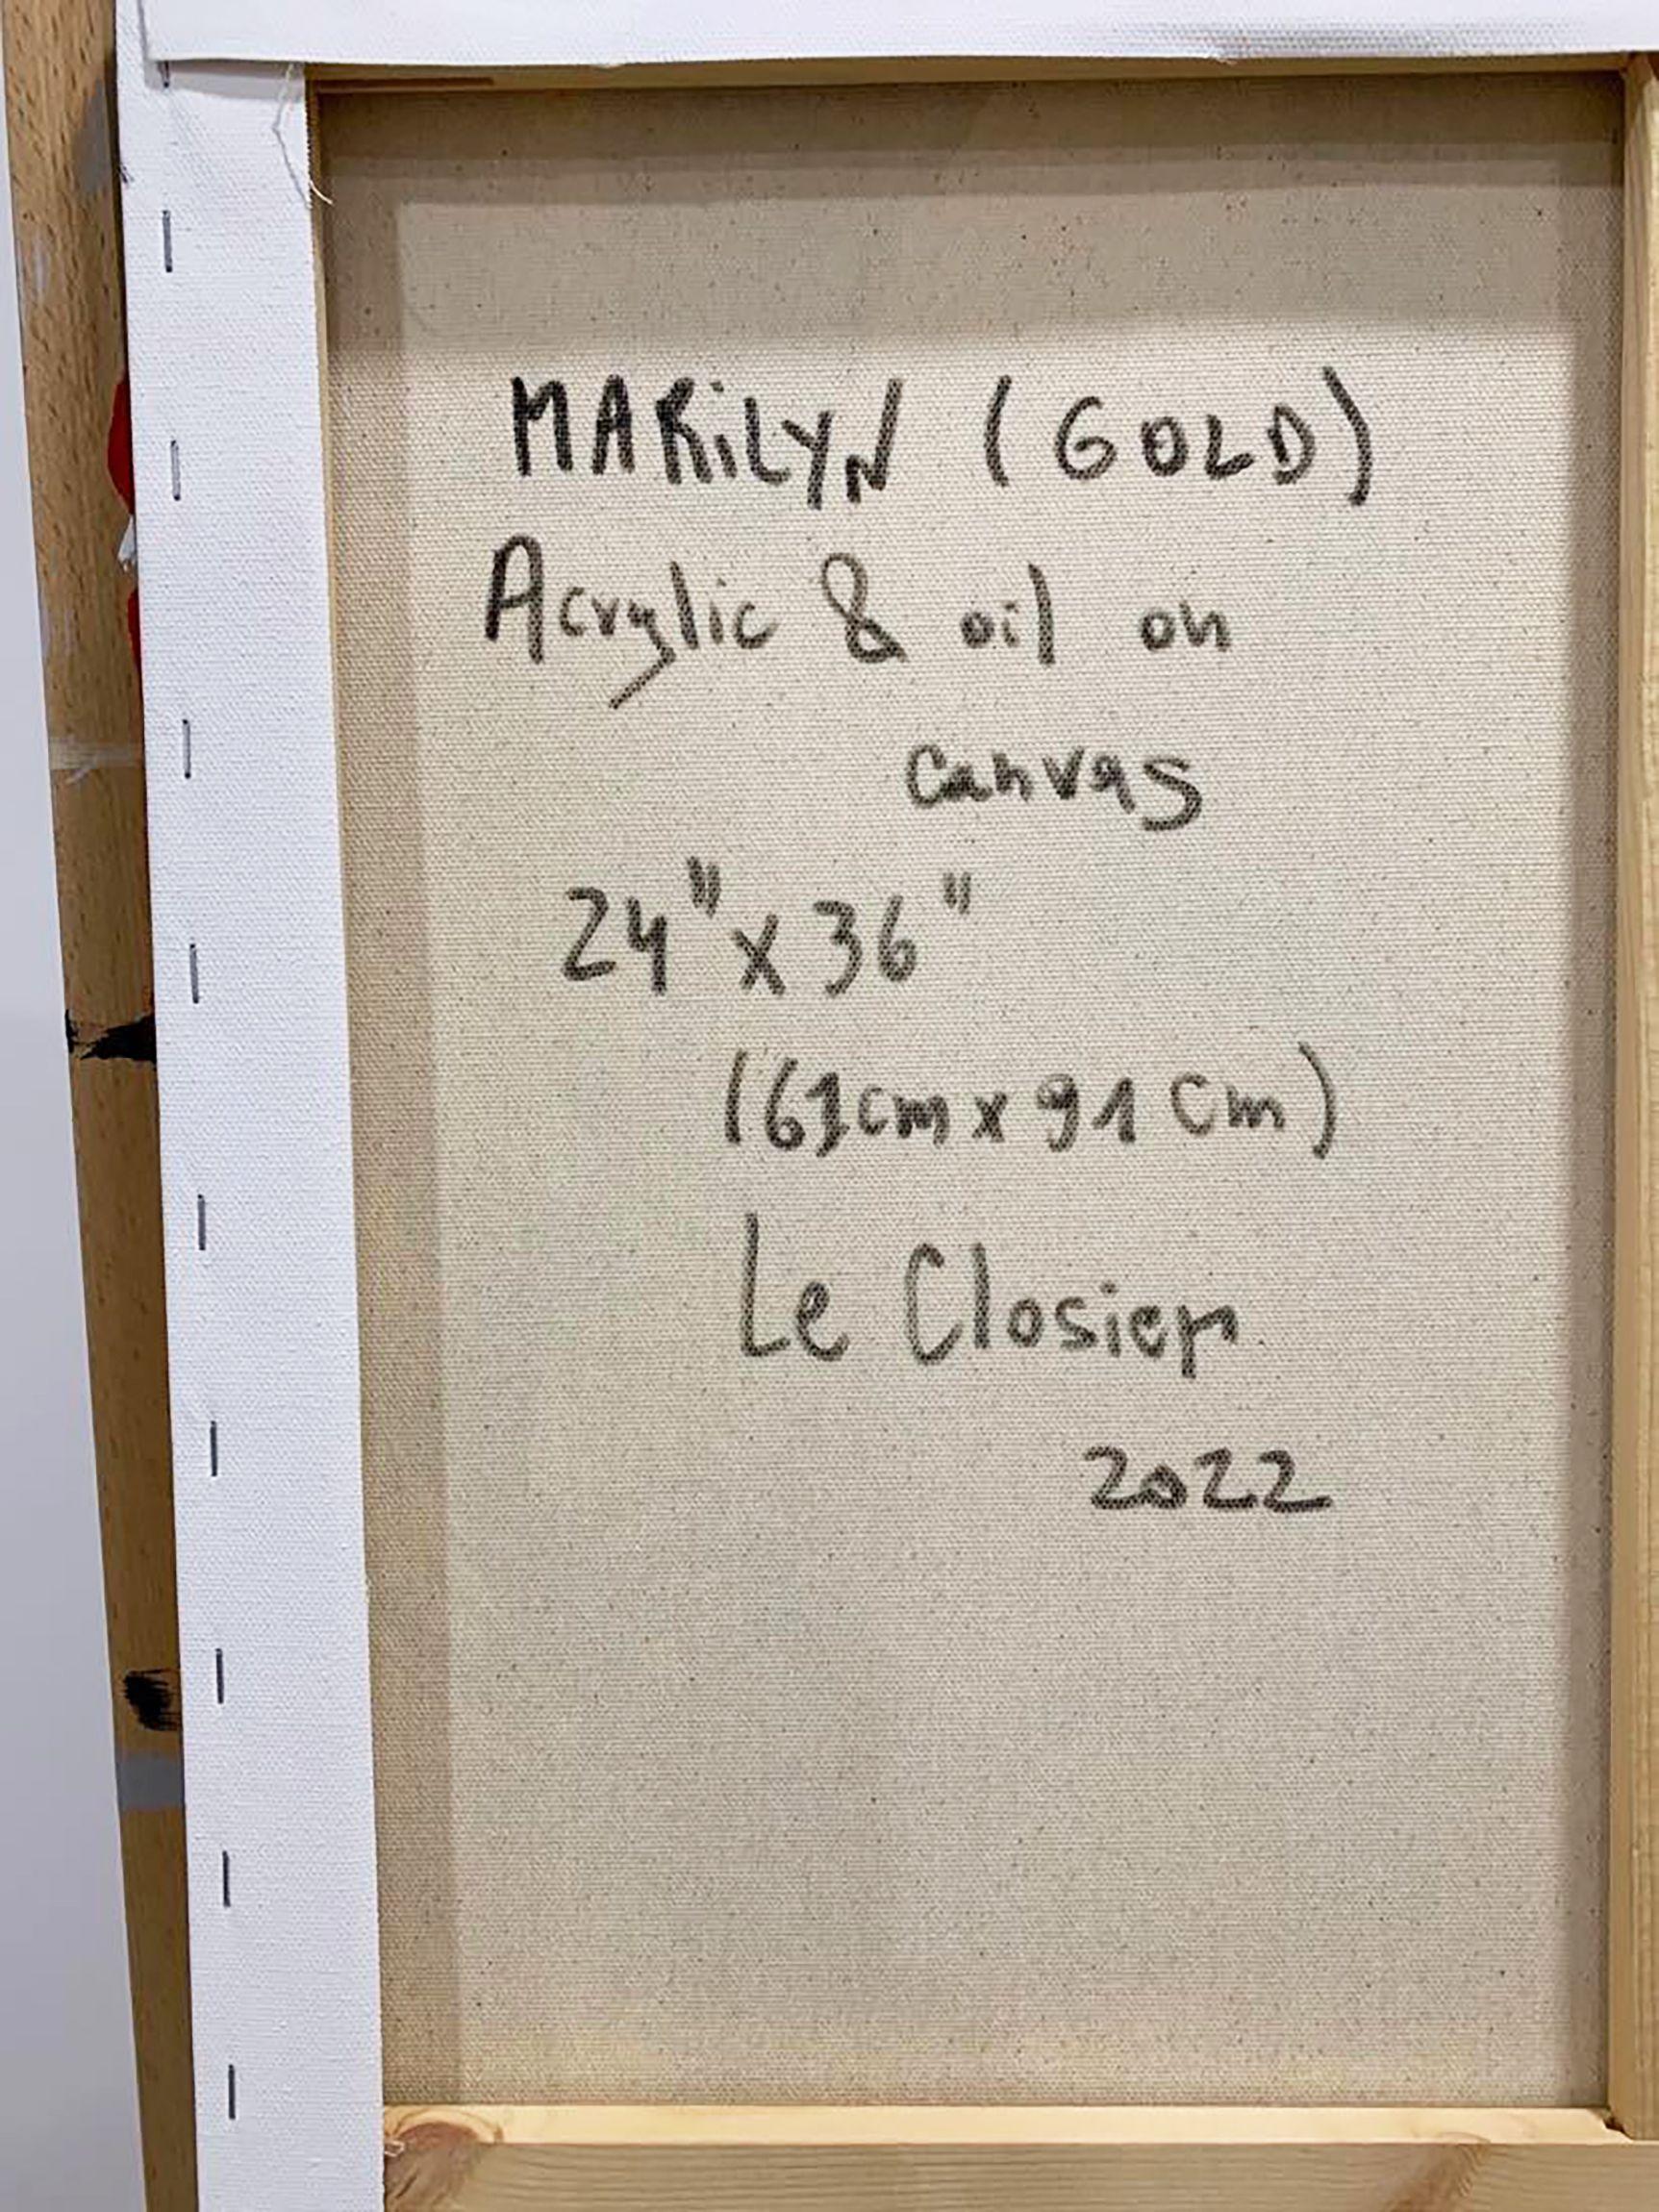 MARiLYN (GOLD)
Acrylic & oil on
canvas
24" x 36"
(61cm x 91 cm)
Le Closier
2022